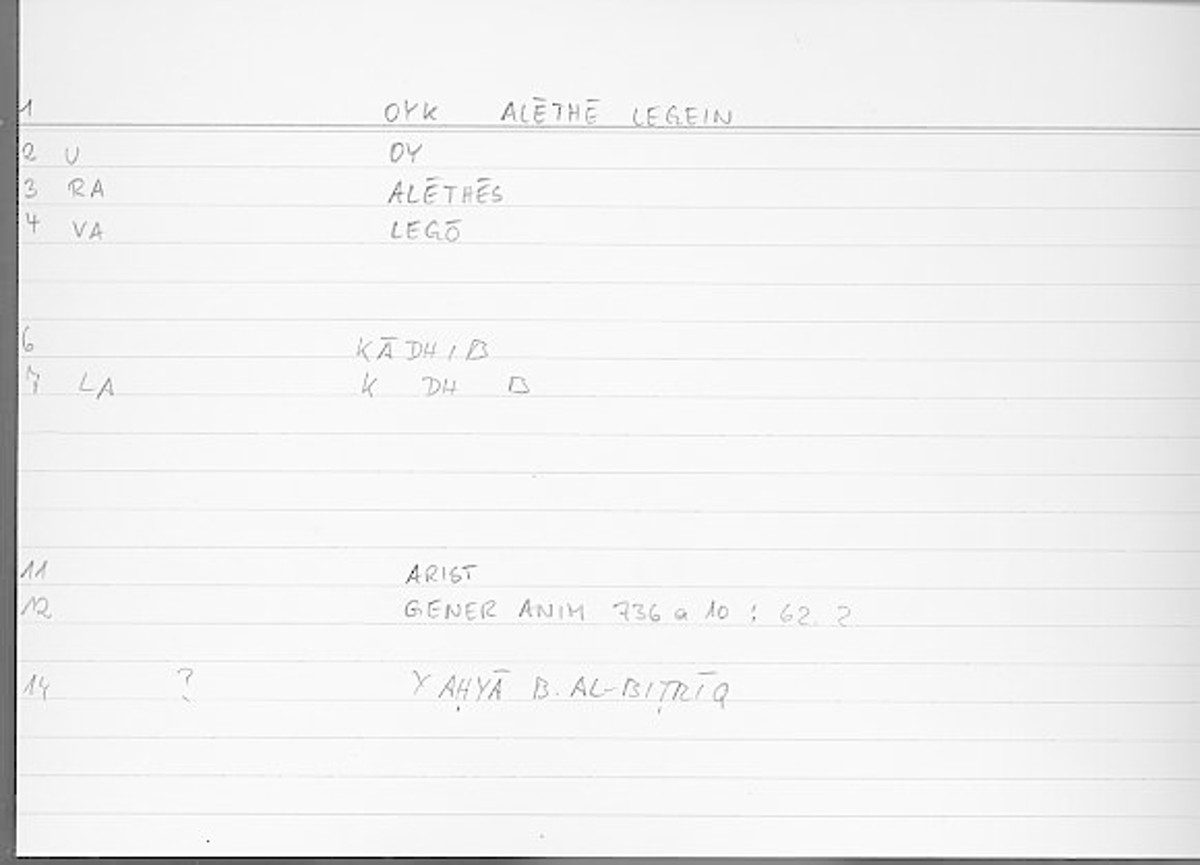 1 OYK ALĒTHĒ LEGEIN
2 U OY
3 RA ALĒTHĒS
4 VA LEGŌ
6 KĀDHIB
7 LA K DH B
11 ARIST
12 GENER ANIM 736 a 10 : 62. 2
14 ? YAḤYĀ B. AL-BIṬRĪQ